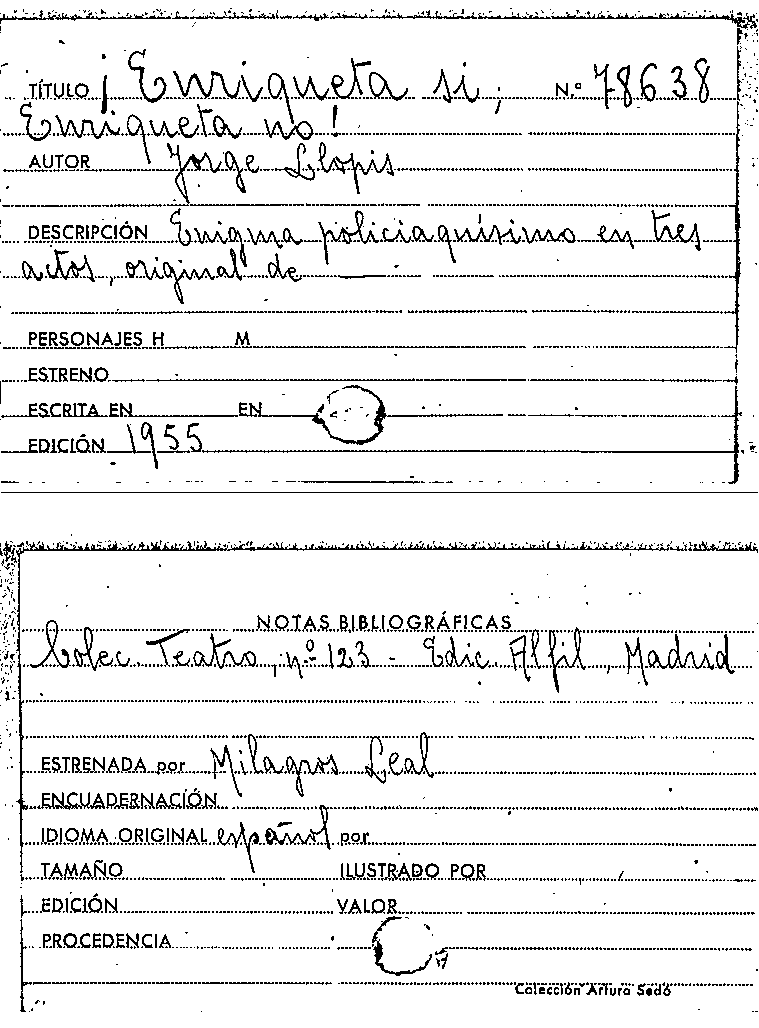 TÍTULO ¡Enriqueta si, N.º 78638
Enriqueta no!
AUTOR Jorge Llopis
DESCRIPCIÓN Enigma policiaquísimo en tres
actos, original de
PERSONAJES H M
ESTRENO
ESCRITA EN EN
EDICIÓN 1955
NOTAS BIBLIOGRÁFICAS
Colec. Teatro, nº 123 - Edic. Alfil, Madrid
ESTRENADA por Milagros Leal
ENCUADERNACIÓN
IDIOMA ORIGINAL español por
TAMAÑO ILUSTRADO POR
EDICIÓN VALOR
PROCEDENCIA
Colección Arturo Sedó